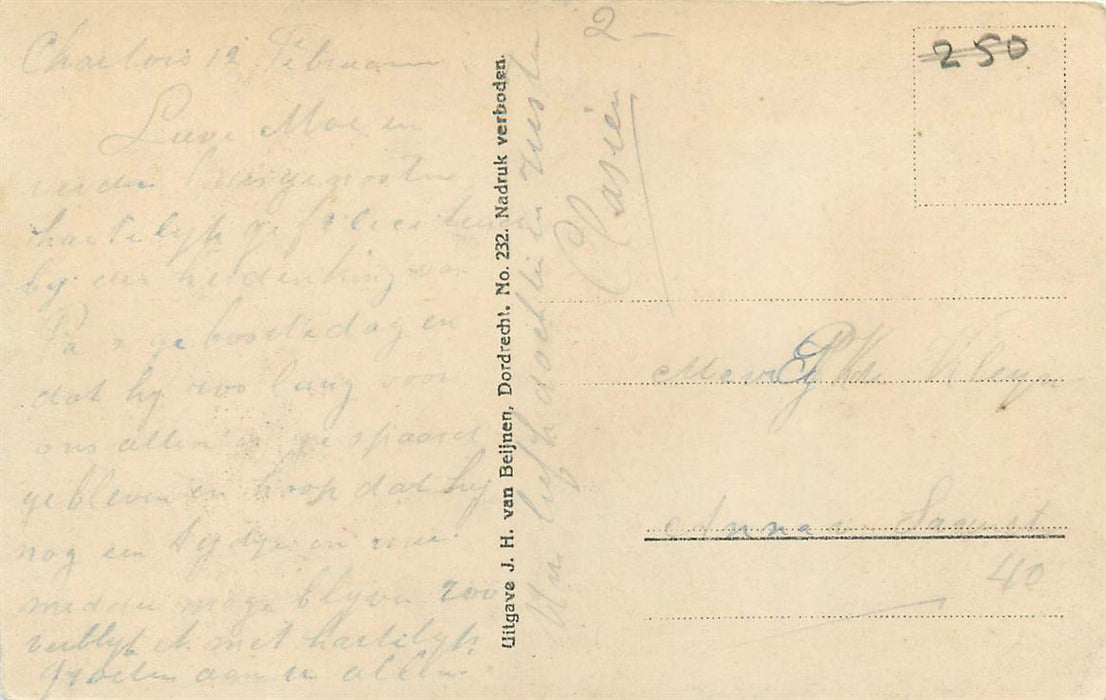 Charlois 12 Februarie
Lieve Moe en
verdere huisgenooten
hartelijk gefeliciteerd
bij de herdenking van
Pa's geboortedag en
dat hij zoo lang voor
ons allen is gespaard
gebleven en hoop dat hij
nog een tijdje in ons
midden mage blijven zoo
verblijf ik met hartelijk
groeten aan u allen
Uw liefh dochter en zuster
Uitgave J. H. van Beijnen, Dordrecht. No. 232. Nadruk verboden.
2 -
250
Kleyn
Anna
40